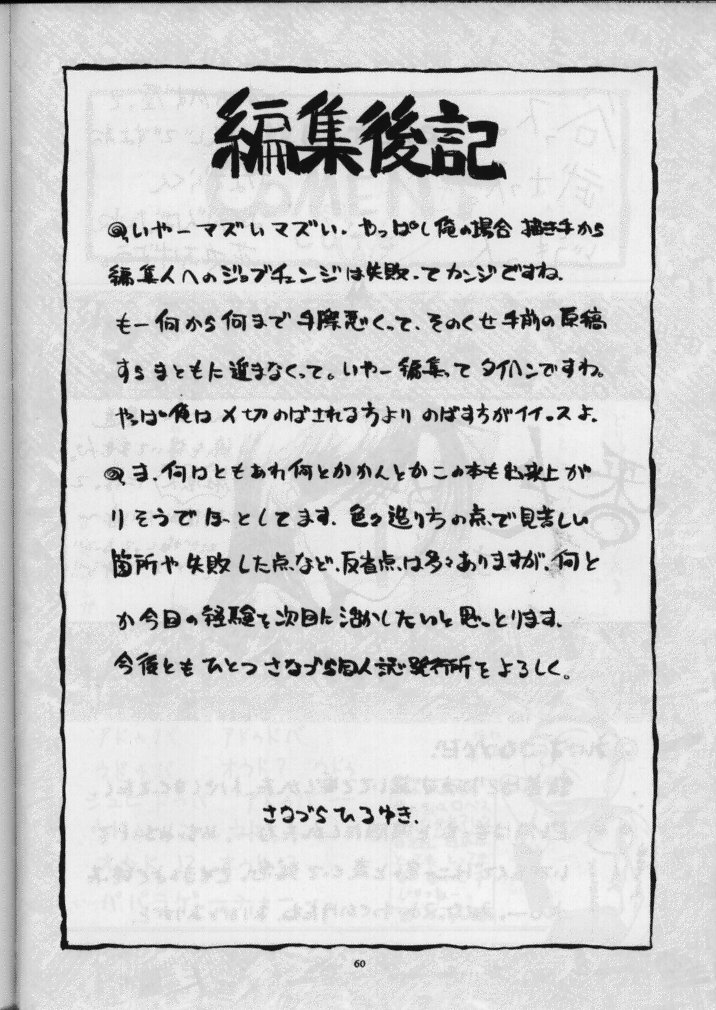 編集後記
@、いやーマズいマズい。やっぱし俺の場合 描き手から
編集人へのジョブチェンジは失敗ってカンジですね。
もー何から何まで手際悪くって、そのくせ手前の原稿
すらまともに進まなくって。いやー編集ってタイヘンですね。
やっぱ俺は〆切のばされる方より のばす方がイイっスよ。
@、ま、何はともあれ何とかかんとかこの本も出来上が
りそうでほっとしてます。色々造りちの点で見苦しい
箇所や失敗した点など、反省点は多々ありますが、何と
か今回の経験を次回に活かしたいと思っとります。
今後ともひとつさなづら同人誌発行所をよろしく。
さなづらひろゆき.
60